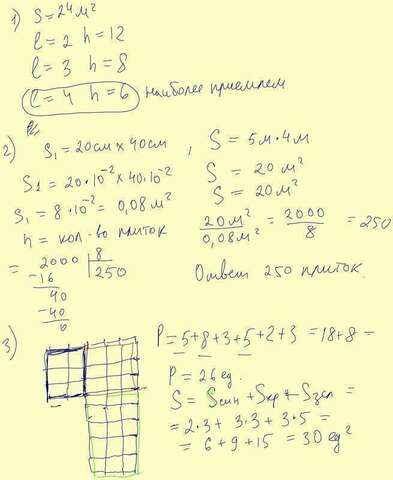 1) S = 24 м²
l = 2 h = 12
l = 3 h = 8
l = 4 h = 6 наиболее приемлем
2) S₁ = 20см × 40см , S = 5м · 4м
S1 = 20·10⁻² × 40·10⁻² S = 20 м²
S₁ = 8·10⁻² = 0,08 м² S = 20 м²
n = кол-во плиток 20 м² / 0,08 м² = 2000 / 8 = 250
= 2000 | 8
-16 250
40
-40
0
Ответ 250 плиток.
3) P = 5+8+3+5+2+3 = 18+8 =
P = 26 ед.
S = Sсин + Sкр + Sзел =
= 2·3 + 3·3 + 3·5 =
= 6 + 9 + 15 = 30 ед²